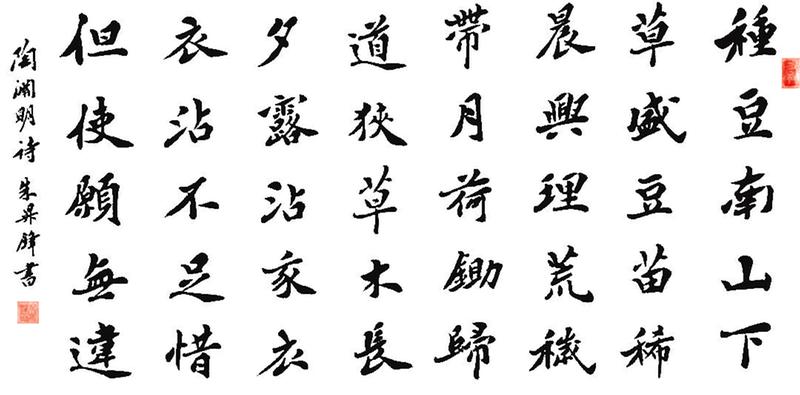 種豆南山下
草盛豆苗稀
晨興理荒穢
帶月荷鋤歸
道狹草木長
夕露沾家衣
衣沾不足惜
但使願無違
陶淵明詩 朱
書